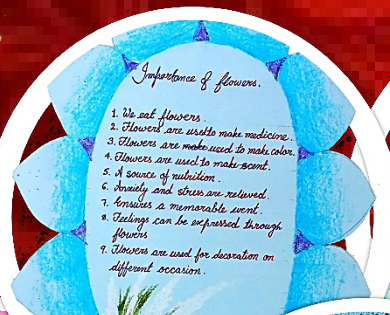 Importance of flowers.
1. We eat flowers.
2. Flowers are used to make medicine.
3. Flowers are make used to make color.
4. Flowers are used to make scent.
5. A source of nutrition.
6. Anxiety and stress are relieved.
7. Ensures a memorable event.
8. Feelings can be expressed through
flowers
9. Flowers are used for decoration on
different occasion.